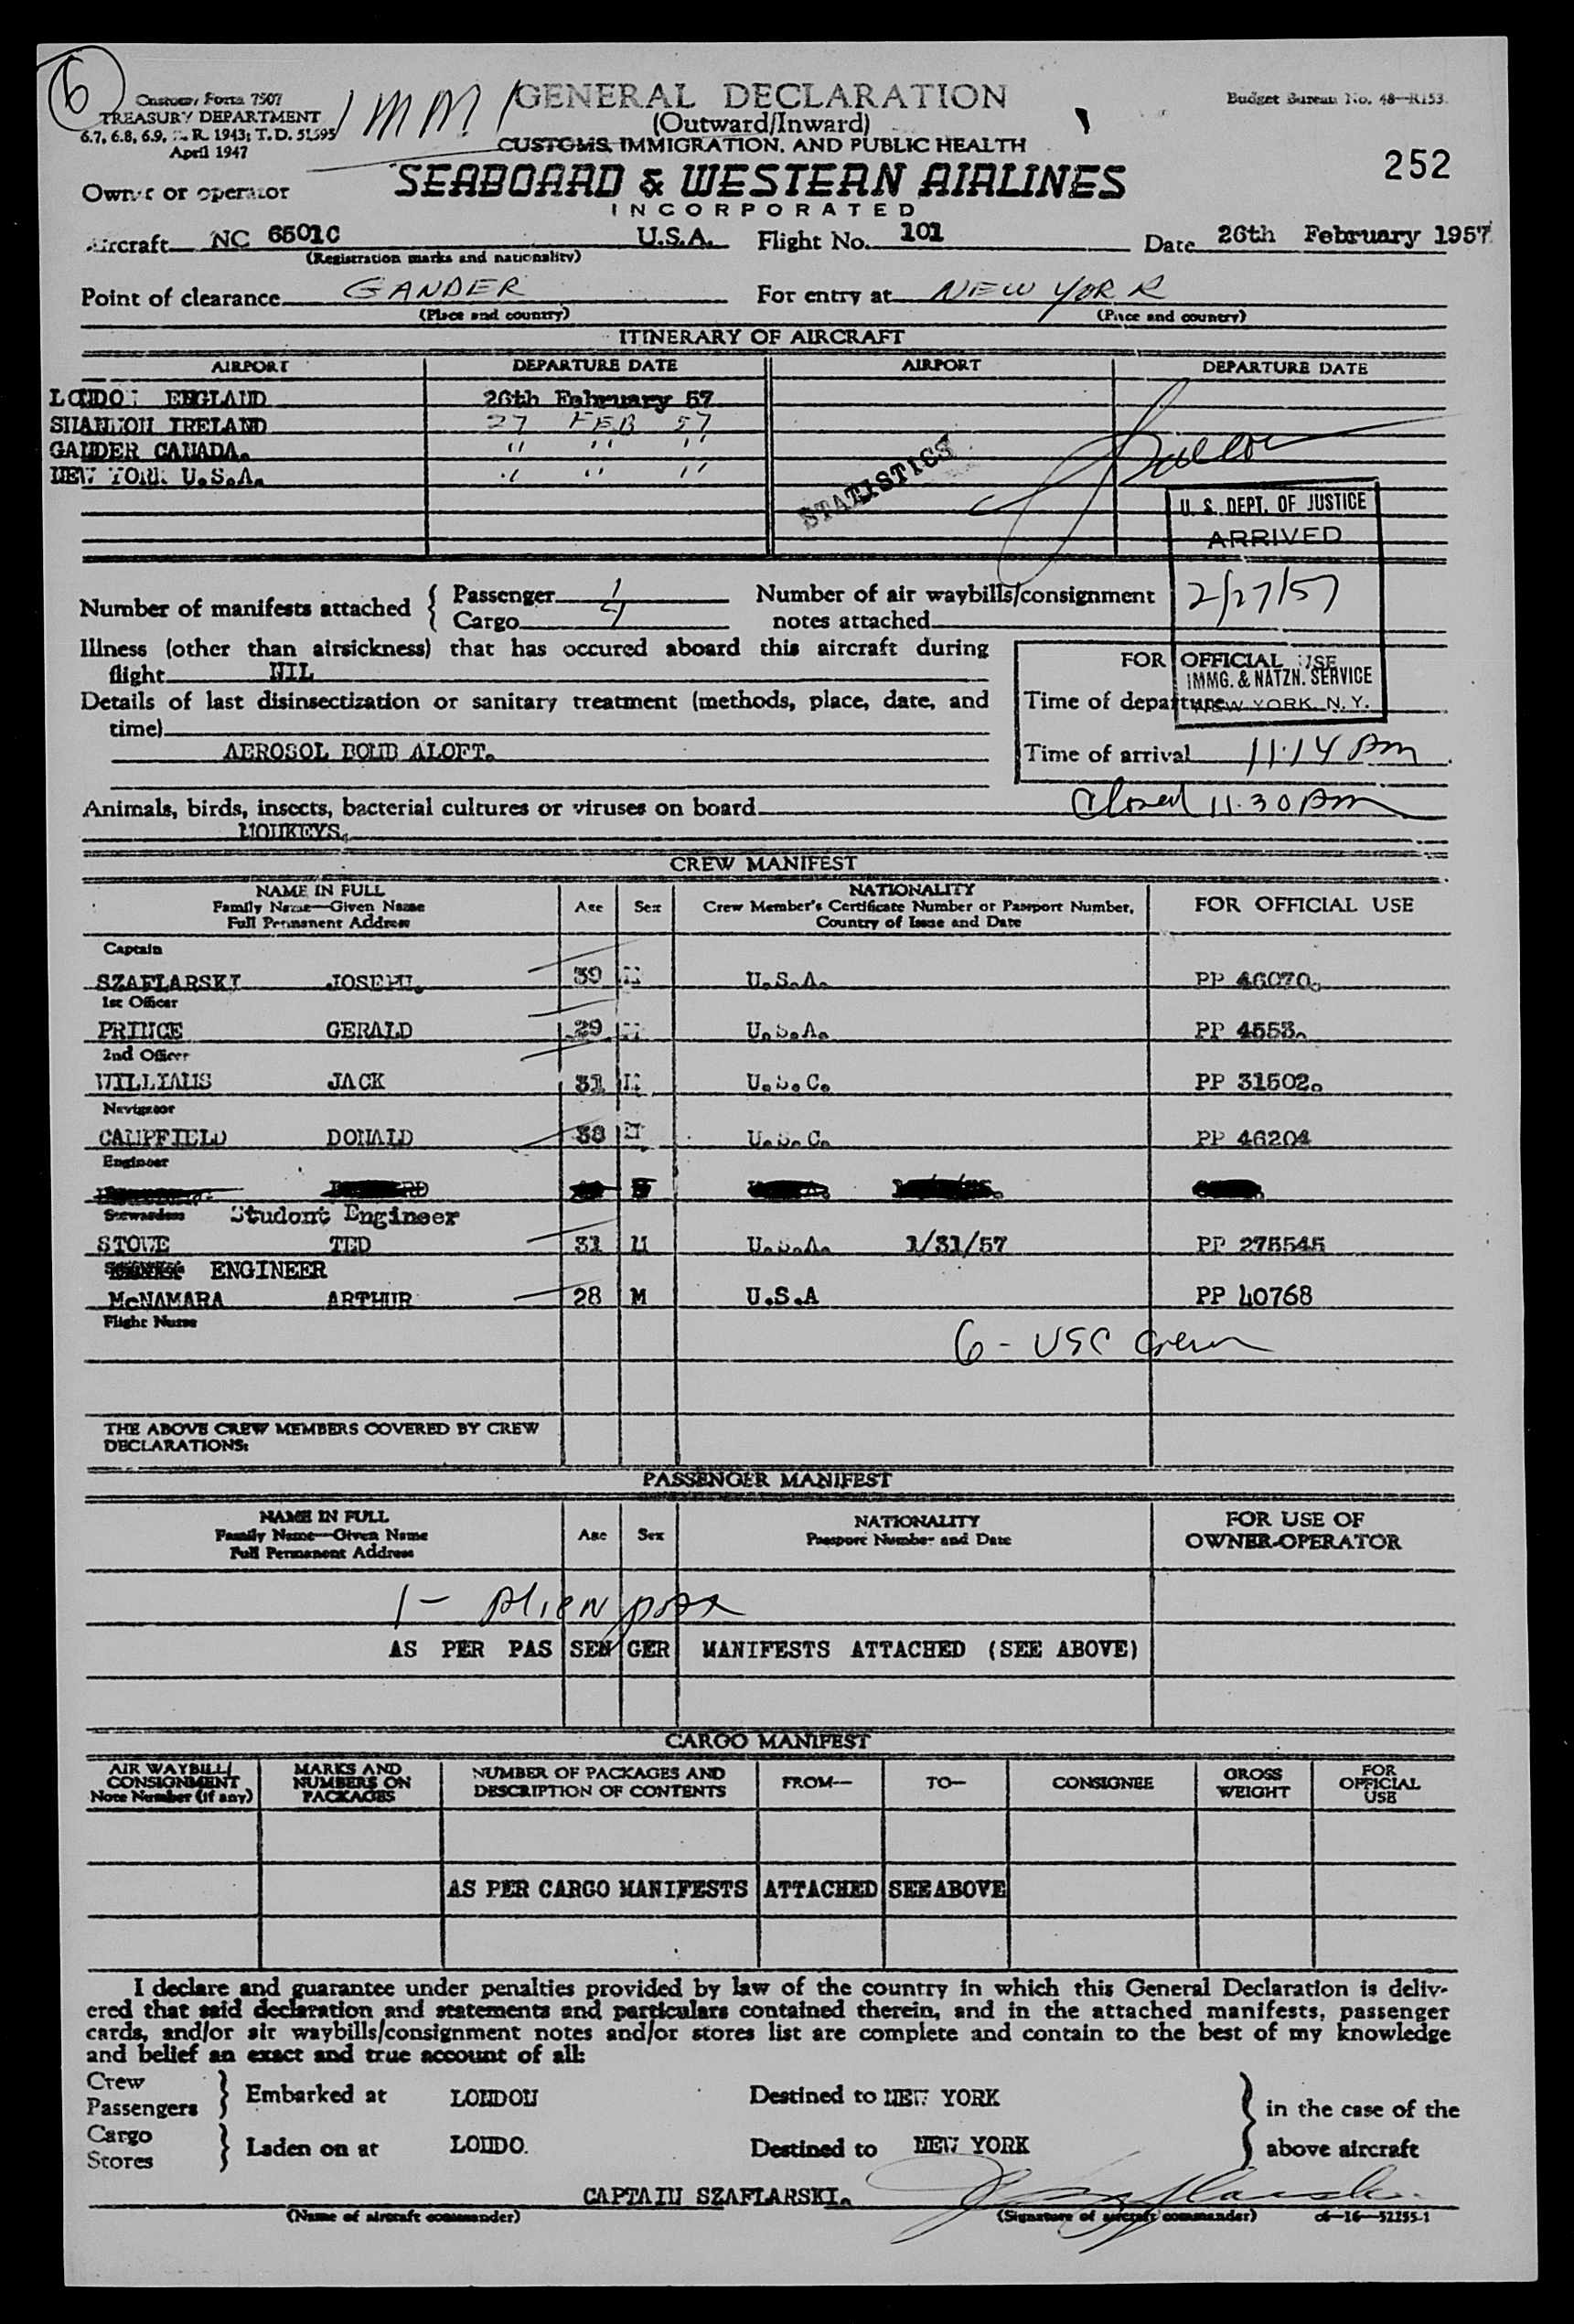 6
Customs Form 7507
TREASURY DEPARTMENT
6.7, 6.8, 6.9, C. R. 1943; T. D. 51595
April 1947
IMMI
GENERAL DECLARATION
(Outward/Inward)
CUSTOMS, IMMIGRATION, AND PUBLIC HEALTH
Budget Bureau No. 48—R153.
252
Owner or operator
SEABOARD & WESTERN AIRLINES
INCORPORATED
Aircraft NC 6501C U.S.A. Flight No. 101 Date 26th February 1957
(Registration marks and nationality)
Point of clearance GANDER For entry at NEW YORK
(Place and country) (Place and country)
ITINERARY OF AIRCRAFT
AIRPORT DEPARTURE DATE AIRPORT DEPARTURE DATE
LONDON ENGLAND 26th February 57
SHANNON IRELAND 27 FEB 57
GANDER CANADA. " " "
NEW YORK U.S.A. " " "
STATISTICS
U. S. DEPT. OF JUSTICE
ARRIVED
2/27/57
IMMG. & NATZN. SERVICE
NEW YORK, N. Y.
Number of manifests attached { Passenger 1
Cargo 4
Number of air waybills/consignment
notes attached
Illness (other than airsickness) that has occured aboard this aircraft during
flight NIL
FOR OFFICIAL USE
Details of last disinsectization or sanitary treatment (methods, place, date, and
time)
Time of departure
AEROSOL BOMB ALOFT.
Time of arrival 11:14 pm
Closed 11.30 pm
Animals, birds, insects, bacterial cultures or viruses on board
MONKEYS.
CREW MANIFEST
NAME IN FULL
Family Name—Given Name
Full Permanent Address
Age Sex
NATIONALITY
Crew Member's Certificate Number or Passport Number,
Country of Issue and Date
FOR OFFICIAL USE
Captain
SZAFLARSKI JOSEPH. 39 M U.S.A. PP 46070.
1st Officer
PRINCE GERALD 29 M U.S.A. PP 4553.
2nd Officer
WILLIAMS JACK 31 M U.S.C. PP 31502.
Navigator
CAMPFIELD DONALD 38 M U.S.C. PP 46204
Engineer
Stewardess Student Engineer
STOWE TED 31 M U.S.A. 1/31/57 PP 275545
ENGINEER
McNAMARA ARTHUR 28 M U.S.A PP 40768
Flight Nurse
6 - USC Crew
THE ABOVE CREW MEMBERS COVERED BY CREW
DECLARATIONS:
PASSENGER MANIFEST
NAME IN FULL
Family Name—Given Name
Full Permanent Address
Age Sex
NATIONALITY
Passport Number and Date
FOR USE OF
OWNER-OPERATOR
1 - Alien pass
AS PER PAS SEN GER MANIFESTS ATTACHED (SEE ABOVE)
CARGO MANIFEST
AIR WAYBILL/
CONSIGNMENT
Note Number (if any)
MARKS AND
NUMBERS ON
PACKAGES
NUMBER OF PACKAGES AND
DESCRIPTION OF CONTENTS
FROM—
TO—
CONSIGNEE
GROSS
WEIGHT
FOR
OFFICIAL
USE
AS PER CARGO MANIFESTS ATTACHED SEE ABOVE
I declare and guarantee under penalties provided by law of the country in which this General Declaration is deliv-
ered that said declaration and statements and particulars contained therein, and in the attached manifests, passenger
cards, and/or air waybills/consignment notes and/or stores list are complete and contain to the best of my knowledge
and belief an exact and true account of all:
Crew
Passengers } Embarked at LONDON Destined to NEW YORK
Cargo
Stores } Laden on at LONDO. Destined to NEW YORK
} in the case of the
above aircraft
CAPTAIN SZAFLARSKI.
(Name of aircraft commander) (Signature of aircraft commander) c6—16—52255-1